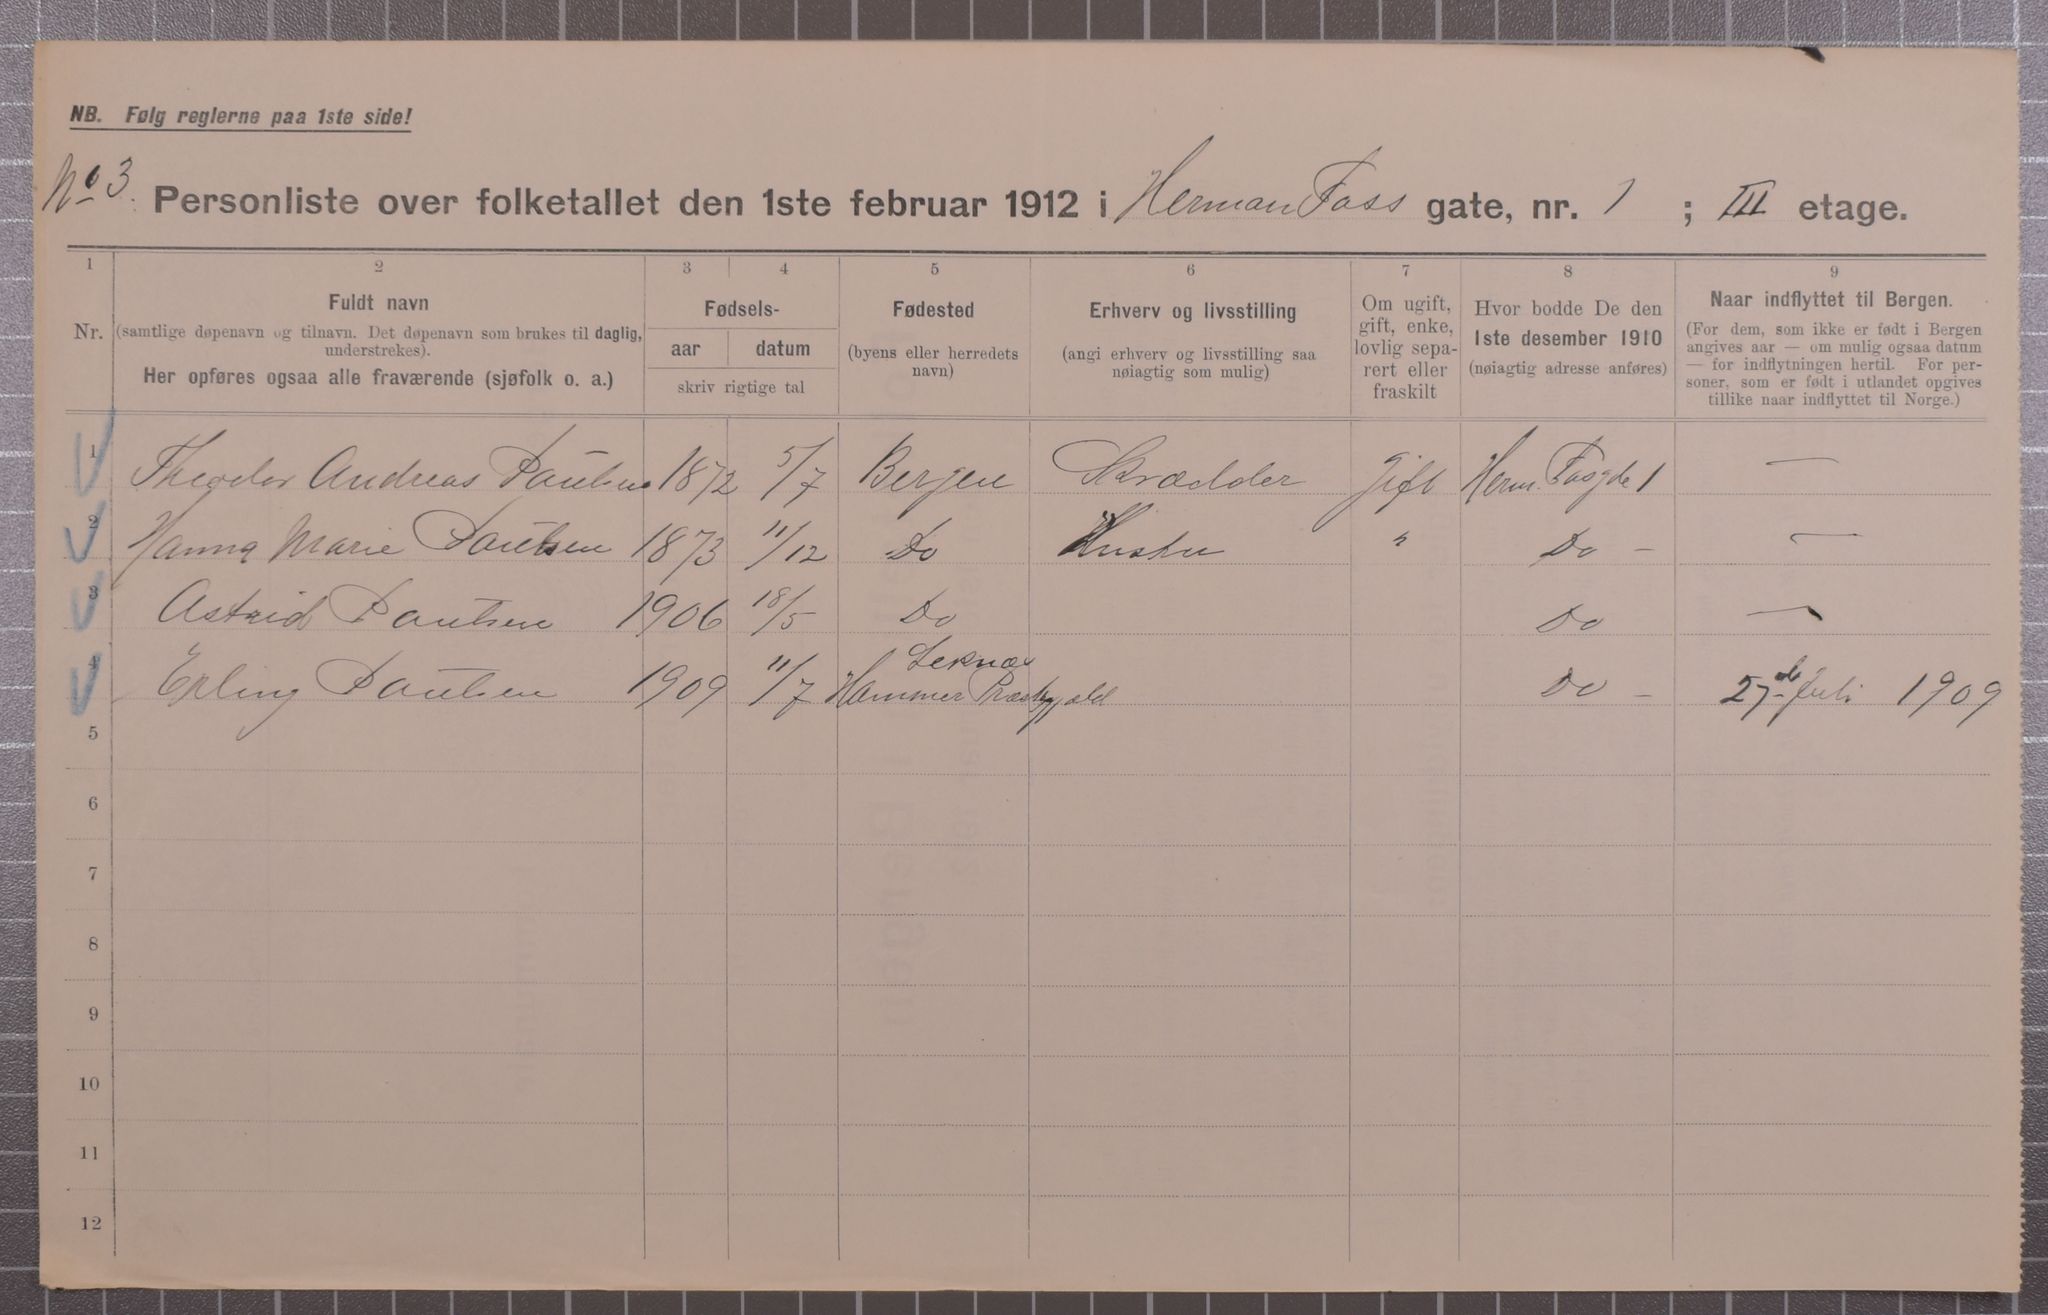 NB. Følg reglerne paa 1ste side!
No 3. Personliste over folketallet den 1ste februar 1912 i Herman Foss gate, nr. 1 ; III etage.
1 2 3 4 5 6 7 8 9
Nr.
Fuldt navn
(samtlige døpenavn og tilnavn. Det døpenavn som brukes til daglig, understrekes).
Her opføres ogsaa alle fraværende (sjøfolk o. a.)
Fødsels-
aar datum
skriv rigtige tal
Fødested
(byens eller herredets
navn)
Erhverv og livsstilling
(angi erhverv og livsstilling saa
nøiagtig som mulig)
Om ugift,
gift, enke,
lovlig sepa-
rert eller
fraskilt
Hvor bodde De den
1ste desember 1910
(nøiagtig adresse anføres)
Naar indflyttet til Bergen.
(For dem, som ikke er født i Bergen
angives aar — om mulig ogsaa datum
— for indflytningen hertil. For per-
soner, som er født i utlandet opgives
tillike naar indflyttet til Norge.)
1 Theodor Andreas Paulsen 1872 5/7 Bergen Skrædder Gift Herm. Fossgde 1 —
2 Hanna Marie Paulsen 1873 11/12 Do Hustru " Do — —
3 Astrid Paulsen 1906 18/5 Do Do —
4 Erling Paulsen 1909 11/7 Leknæs Hammer Præstegjæld Do — 27de Juli 1909
5
6
7
8
9
10
11
12